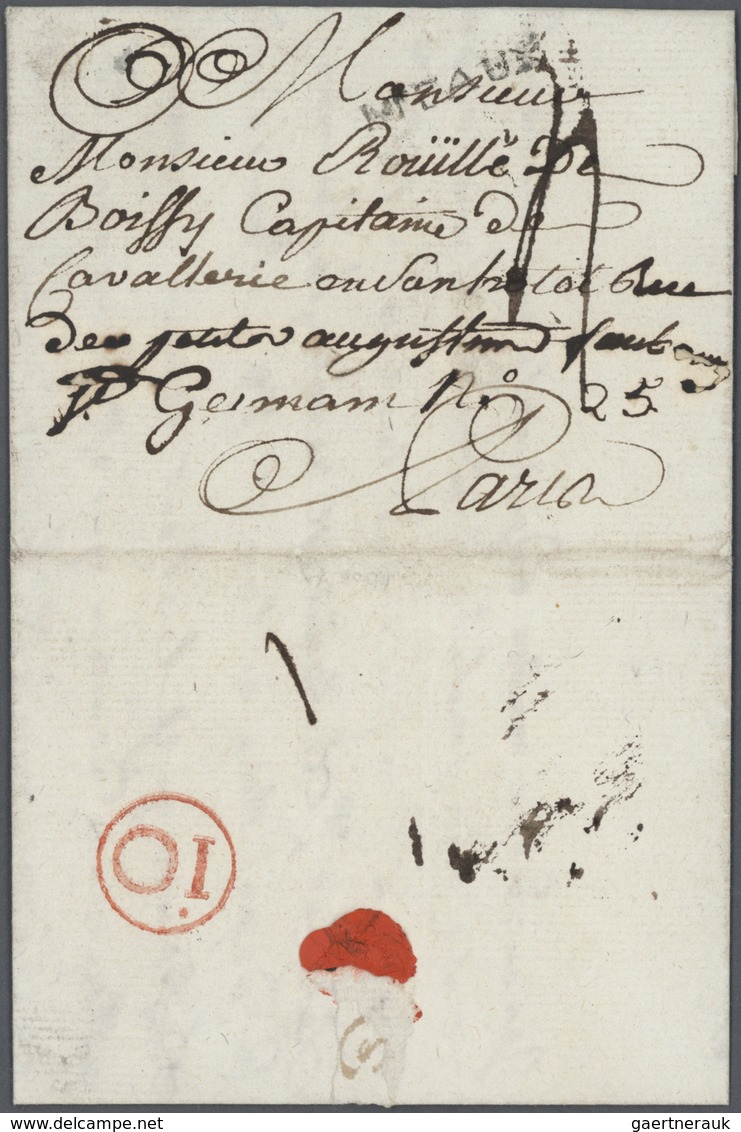 MEAUX
Monsieur
Monsieur Roüillé De
Boissy Capitaine de
Cavallerie en Son hotel Rue
des petits augustins faub
St Germain N° 25
Paris
10
gaertnerauk